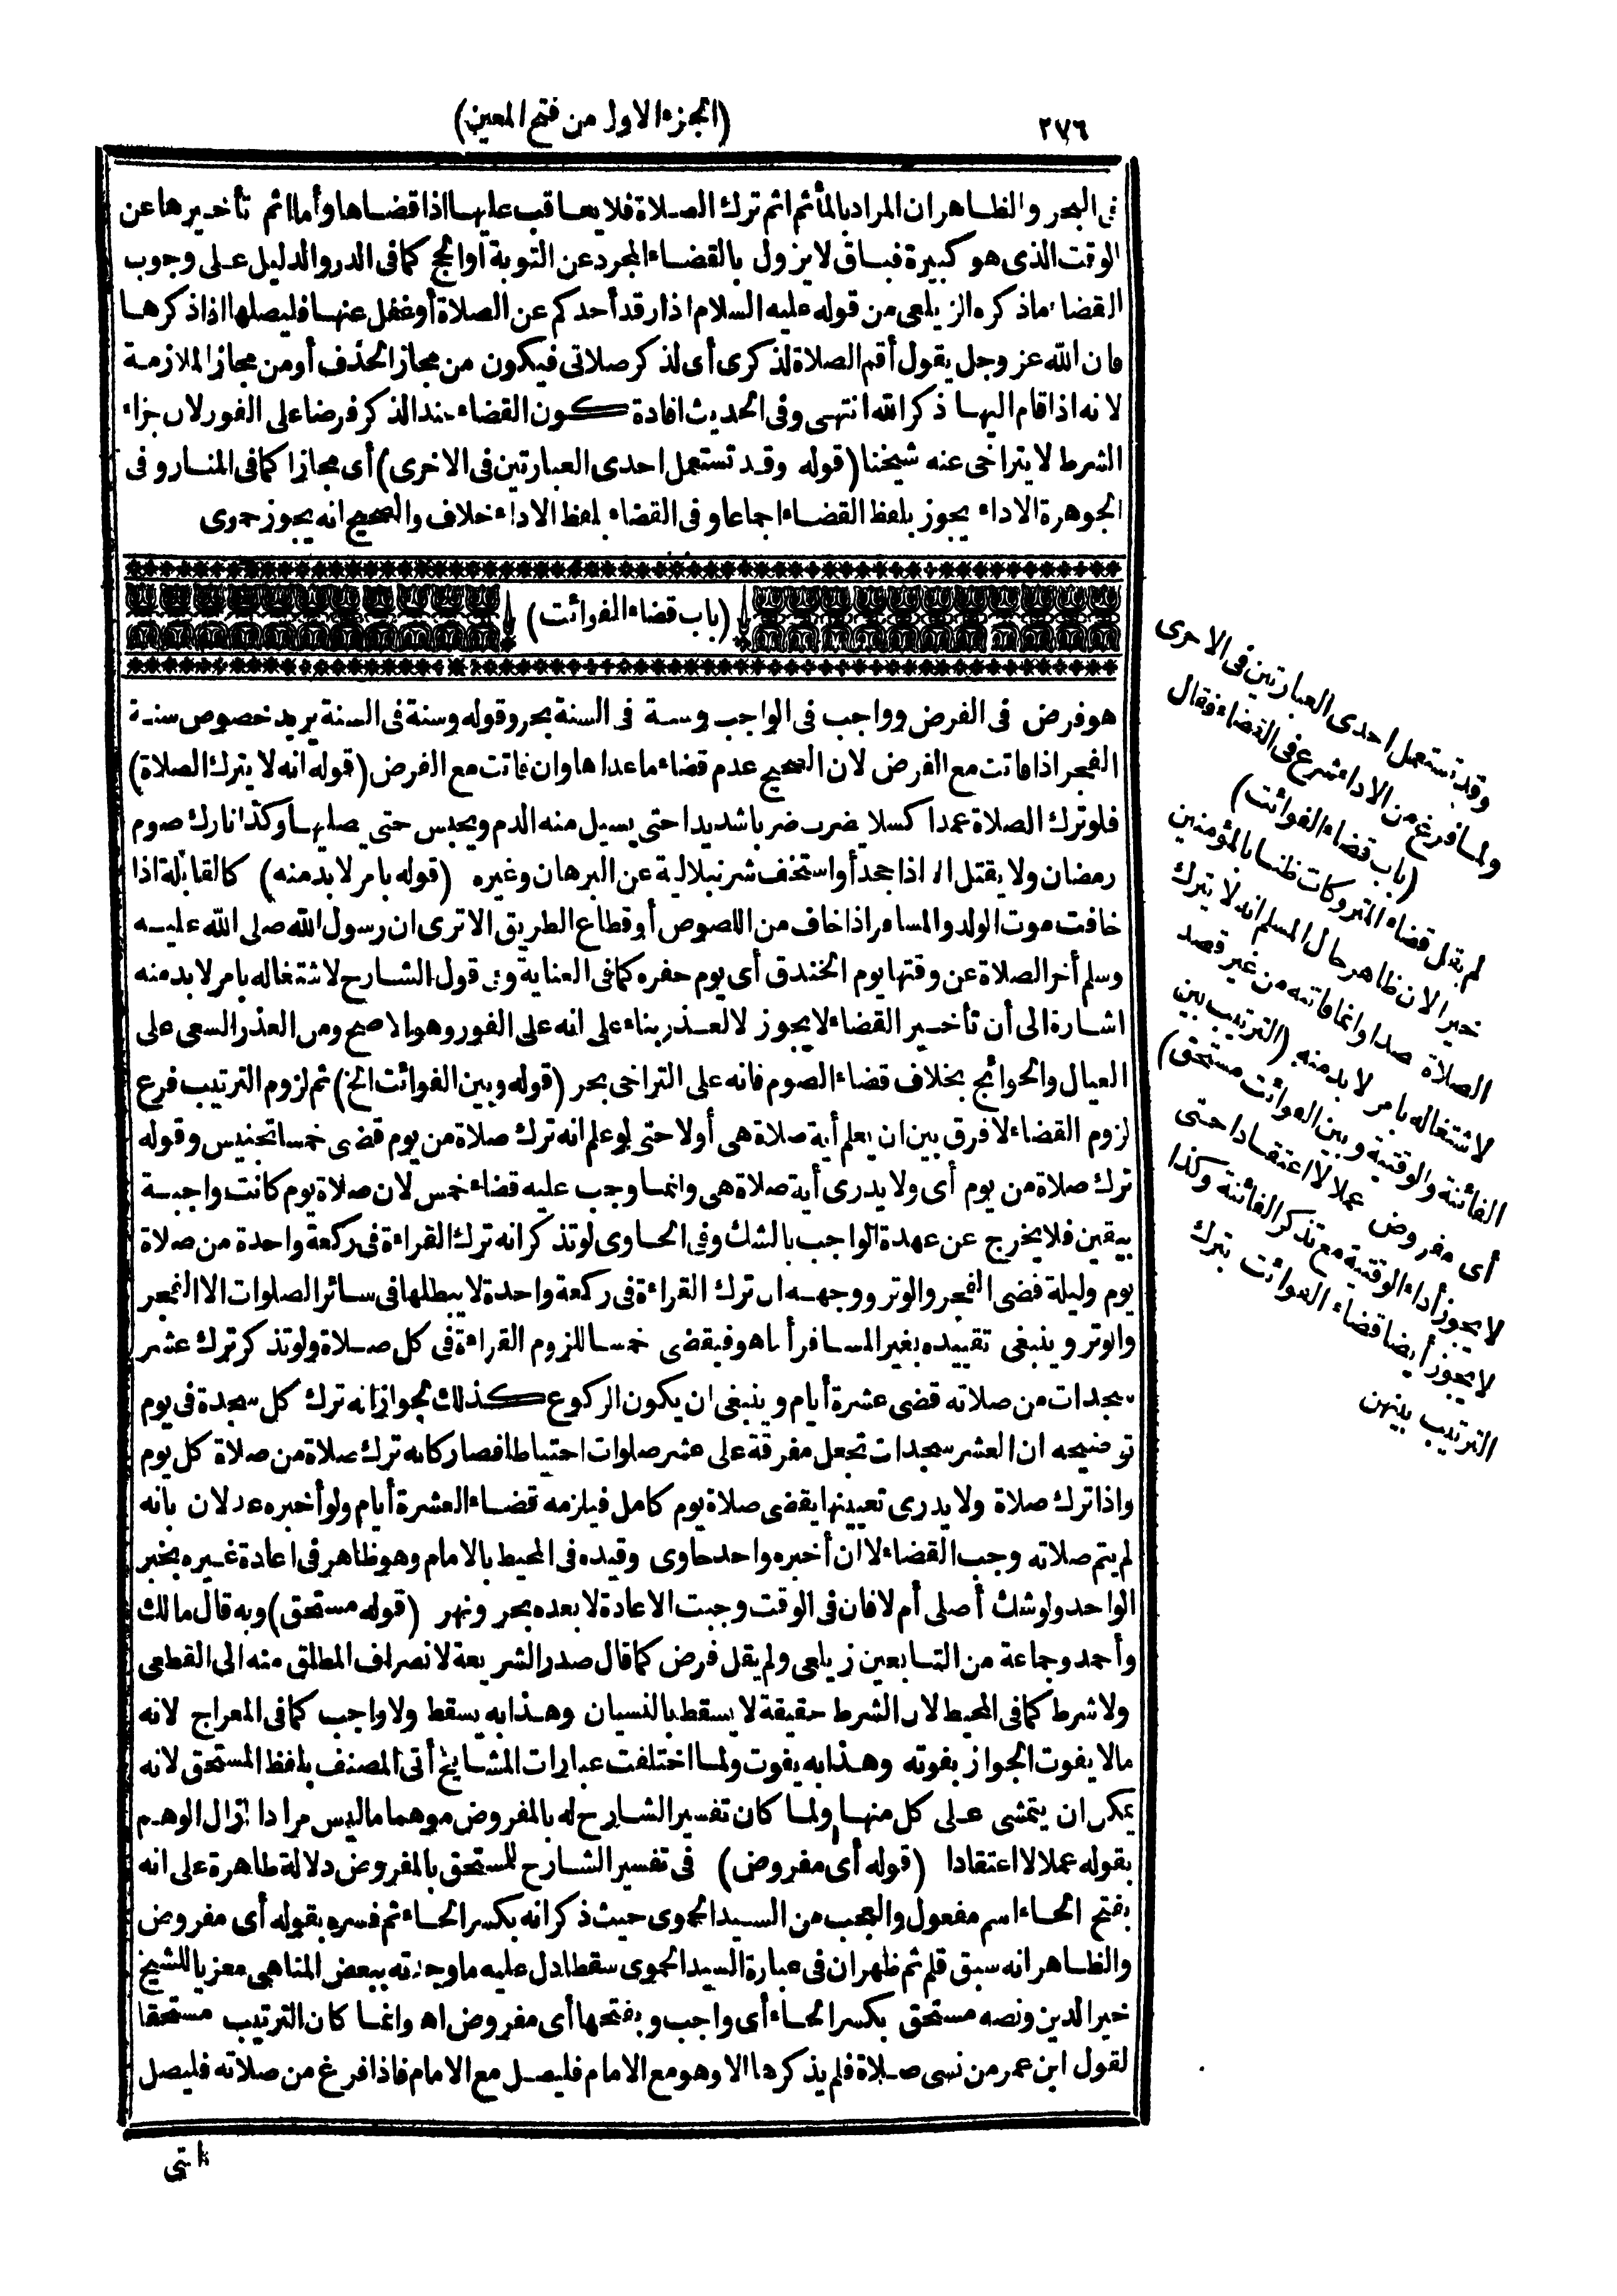 ٢٧٦
(الجزء الاول من فتح المعين)
فى البحر والظاهر ان المراد بالمأثم اثم ترك الصلاة فلا يعاقب عليها اذا قضاها وأما اثم تأخيرها عن
الوقت الذى هو كبيرة فباق لا يزول بالقضاء المجرد عن التوبة أو الحج كما فى الدر والدليل على وجوب
القضاء ماذكره الزيلعى من قوله عليه السلام اذا رقد أحدكم عن الصلاة أو غفل عنها فليصلها اذا ذكرها
فان الله عز وجل يقول أقم الصلاة لذكرى أى لذكر صلاتى فيكون من مجاز الحذف أو من مجاز الملازمة
لانه اذا قام اليها ذكر الله انتهى وفى الحديث افادة كون القضاء عند الذكر فرضا على الفور لان جزاء
الشرط لا يتراخى عنه شيخنا (قوله وقد تستعمل احدى العبارتين فى الاخرى) أى مجازا كما فى المنار وفى
الجوهرة الاداء يجوز بلفظ القضاء اجماعا وفى القضاء بلفظ الاداء خلاف والصحيح انه يجوز حموى
(باب قضاء الفوائت)
هو فرض فى الفرض وواجب فى الواجب وسنة فى السنة بحر وقوله وسنة فى السنة يريد خصوص سنة
الفجر اذا فاتت مع الفرض لان الصحيح عدم قضاء ماعداها وان فاتت مع الفرض (قوله انه لا يترك الصلاة)
فلو ترك الصلاة عمدا كسلا يضرب ضربا شديدا حتى يسيل منه الدم ويحبس حتى يصليها وكذا تارك صوم
رمضان ولا يقتل الا اذا جحد أو استخف شرنبلالية عن البرهان وغيره (قوله بامر لابد منه) كالقابلة اذا
خافت موت الولد والمسافر اذا خاف من اللصوص أو قطاع الطريق الا ترى ان رسول الله صلى الله عليه
وسلم أخر الصلاة عن وقتها يوم الخندق أى يوم حفره كما فى العناية وفى قول الشارح لاشتغاله بامر لابد منه
اشارة الى أن تأخير القضاء لا يجوز لا لعذر بناء على انه على الفور وهو الاصح ومن العذر السعى على
العيال والحوائج بخلاف قضاء الصوم فانه على التراخى بحر (قوله وبين الفوائت الخ) ثم لزوم الترتيب فرع
لزوم القضاء لا فرق بين ان يعلم أية صلاة هى أولا حتى لو علم انه ترك صلاة من يوم قضى خمسا تجنيس وقوله
ترك صلاة من يوم أى ولا يدرى أية صلاة هى وانما وجب عليه قضاء خمس لان صلاة يوم كانت واجبة
بيقين فلا يخرج عن عهدة الواجب بالشك وفى الحاوى لو تذكر انه ترك القراءة فى ركعة واحدة من صلاة
يوم وليلة قضى الفجر والوتر ووجهه ان ترك القراءة فى ركعة واحدة لا يبطلها فى سائر الصلوات الا الفجر
والوتر وينبغى تقييده بغير المسافر أما هو فيقضى خمسا للزوم القراءة فى كل صلاة ولو تذكر ترك عشر
سجدات من صلاته قضى عشرة أيام وينبغى ان يكون الركوع كذلك لجواز انه ترك كل سجدة فى يوم
توضيحه ان العشر سجدات تجعل مفرقة على عشر صلوات احتياطا فصار كانه ترك صلاة من صلاة كل يوم
واذا ترك صلاة ولا يدرى تعيينها يقضى صلاة يوم كامل فيلزمه قضاء العشرة أيام ولو أخبره عدلان بانه
لم يتم صلاته وجب القضاء لا ان أخبره واحد حاوى وقيده فى المحيط بالامام وهو ظاهر فى اعادة غيره بخبر
الواحد ولو شك أصلى أم لا فان فى الوقت وجبت الاعادة لا بعده بحر ونهر (قوله مستحق) وبه قال مالك
وأحمد وجماعة من التابعين زيلعى ولم يقل فرض كما قال صدر الشريعة لانصراف المطلق منه الى القطعى
ولا شرط كما فى المحيط لان الشرط حقيقة لا يسقط بالنسيان وهذا به يسقط ولا واجب كما فى المعراج لانه
مالا يفوت الجواز بفوته وهذا به يفوت ولما اختلفت عبارات المشايخ أتى المصنف بلفظ المستحق لانه
يمكن ان يتمشى على كل منها ولما كان تفسير الشارح له بالمفروض موهما ماليس مرادا ازال الوهم
بقوله عملا لا اعتقادا (قوله أى مفروض) فى تفسير الشارح للمستحق بالمفروض دلالة ظاهرة على انه
بفتح الحاء اسم مفعول والعجب من السيد الحموى حيث ذكر انه بكسر الحاء ثم فسره بقوله أى مفروض
والظاهر انه سبق قلم ثم ظهر ان فى عبارة السيد الحموى سقطا دل عليه ما وجدته ببعض المناهى معزيا للشيخ
خير الدين ونصه مستحق بكسر الحاء أى واجب وبفتحها أى مفروض اه وانما كان الترتيب مستحقا
لقول ابن عمر من نسى صلاة فلم يذكرها الا وهو مع الامام فليصل مع الامام فاذا فرغ من صلاته فليصل
وقد تستعمل احدى العبارتين فى الاخرى
ولما فرغ من الاداء شرع فى القضاء فقال
(باب قضاء الفوائت)
لم يقل قضاء المتروكات ظنا بالمؤمنين
خيرا لان ظاهر حال المسلم انه لا يترك
الصلاة عمدا وانما فاتته من غير قصد
لاشتغاله بامر لا بد منه (الترتيب بين
الفائتة والوقتية وبين الفوائت مستحق)
أى مفروض عملا لا اعتقادا حتى
لا يجوز أداء الوقتية مع تذكر الفائتة وكذا
لا يجوز أيضا قضاء الفوائت بترك
الترتيب بينهن